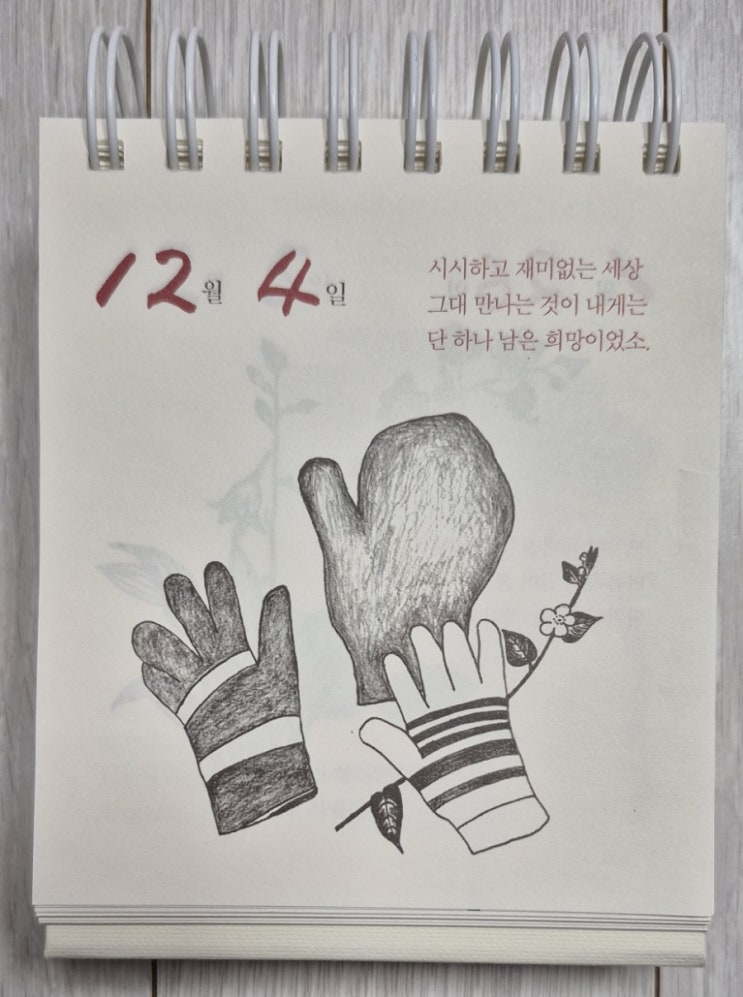 12월 4일
시시하고 재미없는 세상
그대 만나는 것이 내게는
단 하나 남은 희망이었소.